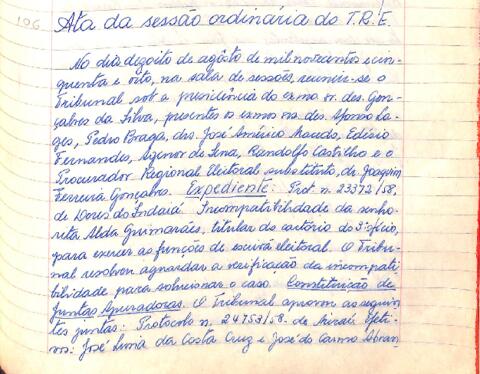 106
Ata da sessão ordinária do T.R.E.
No dia dezoito de agôsto de mil novecentos e cin-
quenta e oito, na sala de sessões, reuniu-se o
Tribunal sob a presidência do exmo sr. des. Gon-
çalves da Silva, presentes os exmos srs. des. Afonso La-
ges, Pedro Braga, drs. José Américo Macedo, Edésio
Fernandes, Agenor de Sena, Randolfo Castilho e o
Procurador Regional Eleitoral substituto, dr. Joaquim
Ferreira Gonçalves. Expediente: Prot. n. 23372/58,
de Dores do Indaiá Incompatibilidade da senho-
rita Alda Guimarães, titular do cartório do 3º ofício,
para exercer as funções de escrivã eleitoral. O Tribu-
nal resolveu aguardar a verificação da incompati-
bilidade para solucionar o caso. Constituição de
Juntas Apuradoras. O Tribunal aprovou as seguin-
tes juntas: Protocolo n. 24753/58. de Miraí: Efeti-
vos: José Lima da Costa Cruz e José do Carmo Abran